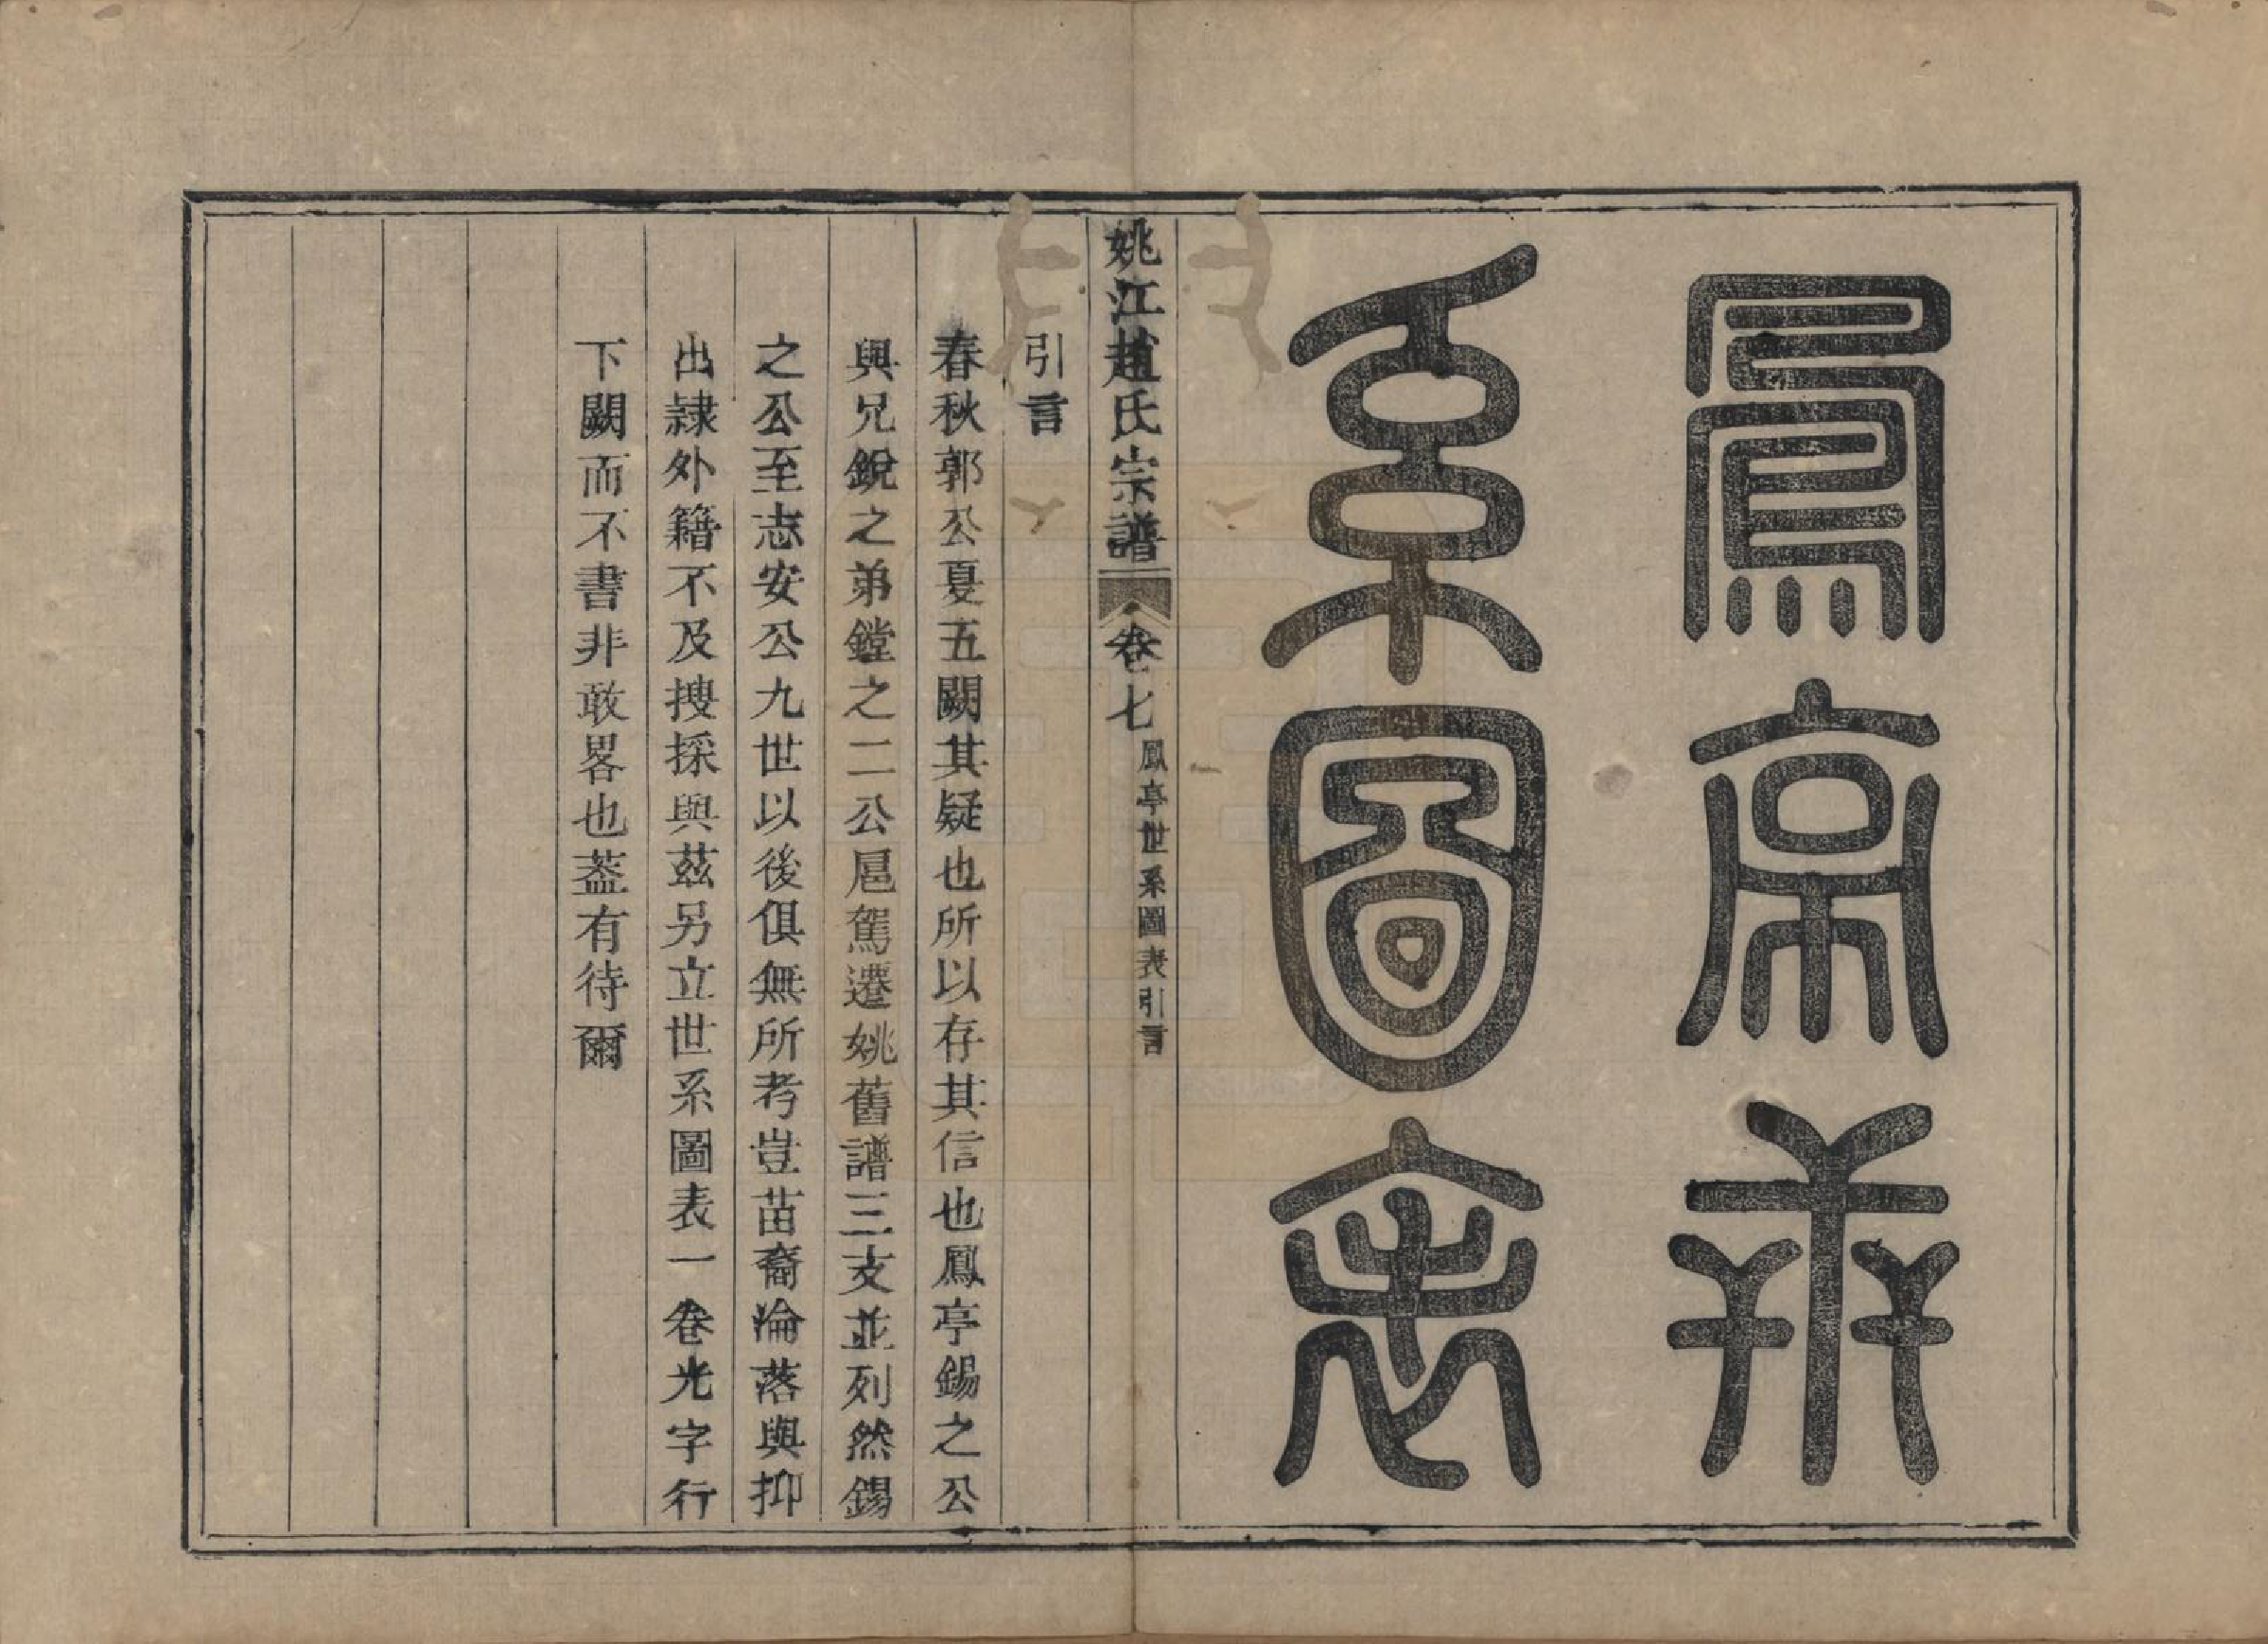 鳳亭世
系圖表
姚江趙氏宗譜 卷七 鳳亭世系圖表引言
引言
春秋郭公夏五闕其疑也所以存其信也鳳亭錫之公
與兄銳之弟鏜之二公扈駕遷姚舊譜三支並列然錫
之公至志安公九世以後俱無所考豈苗裔淪落與抑
出隷外籍不及搜採與茲另立世系圖表一卷光字行
下闕而不書非敢畧也葢有待爾